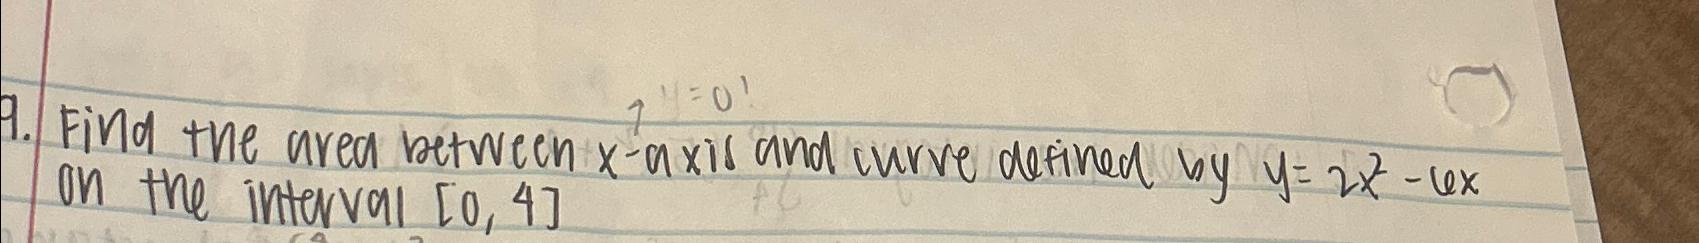 y=0!
9. Find the area between x-axis and curve defined by y= 2x² - 6x
on the interval [0, 4]